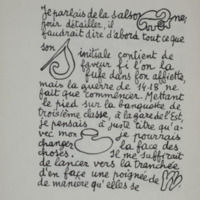 Je parlais de la salso mes,
pour détailler, il
faudrait dire d'abord tout ce que
son initiale contient de
faveur si l'on la
fuse dans son assiette,
mais la guerre de 14-18 ne
fait que commencer. Mettant
le pied sur la banquette de
troisième classe, à la gare de l'Est,
je pensais à juste titre qu'a-
vec mon je pourrais
changer la face des
choses. Il me suffirait
de lancer vers la tranchée
d'en face une poignée de
de manière qu'elles se